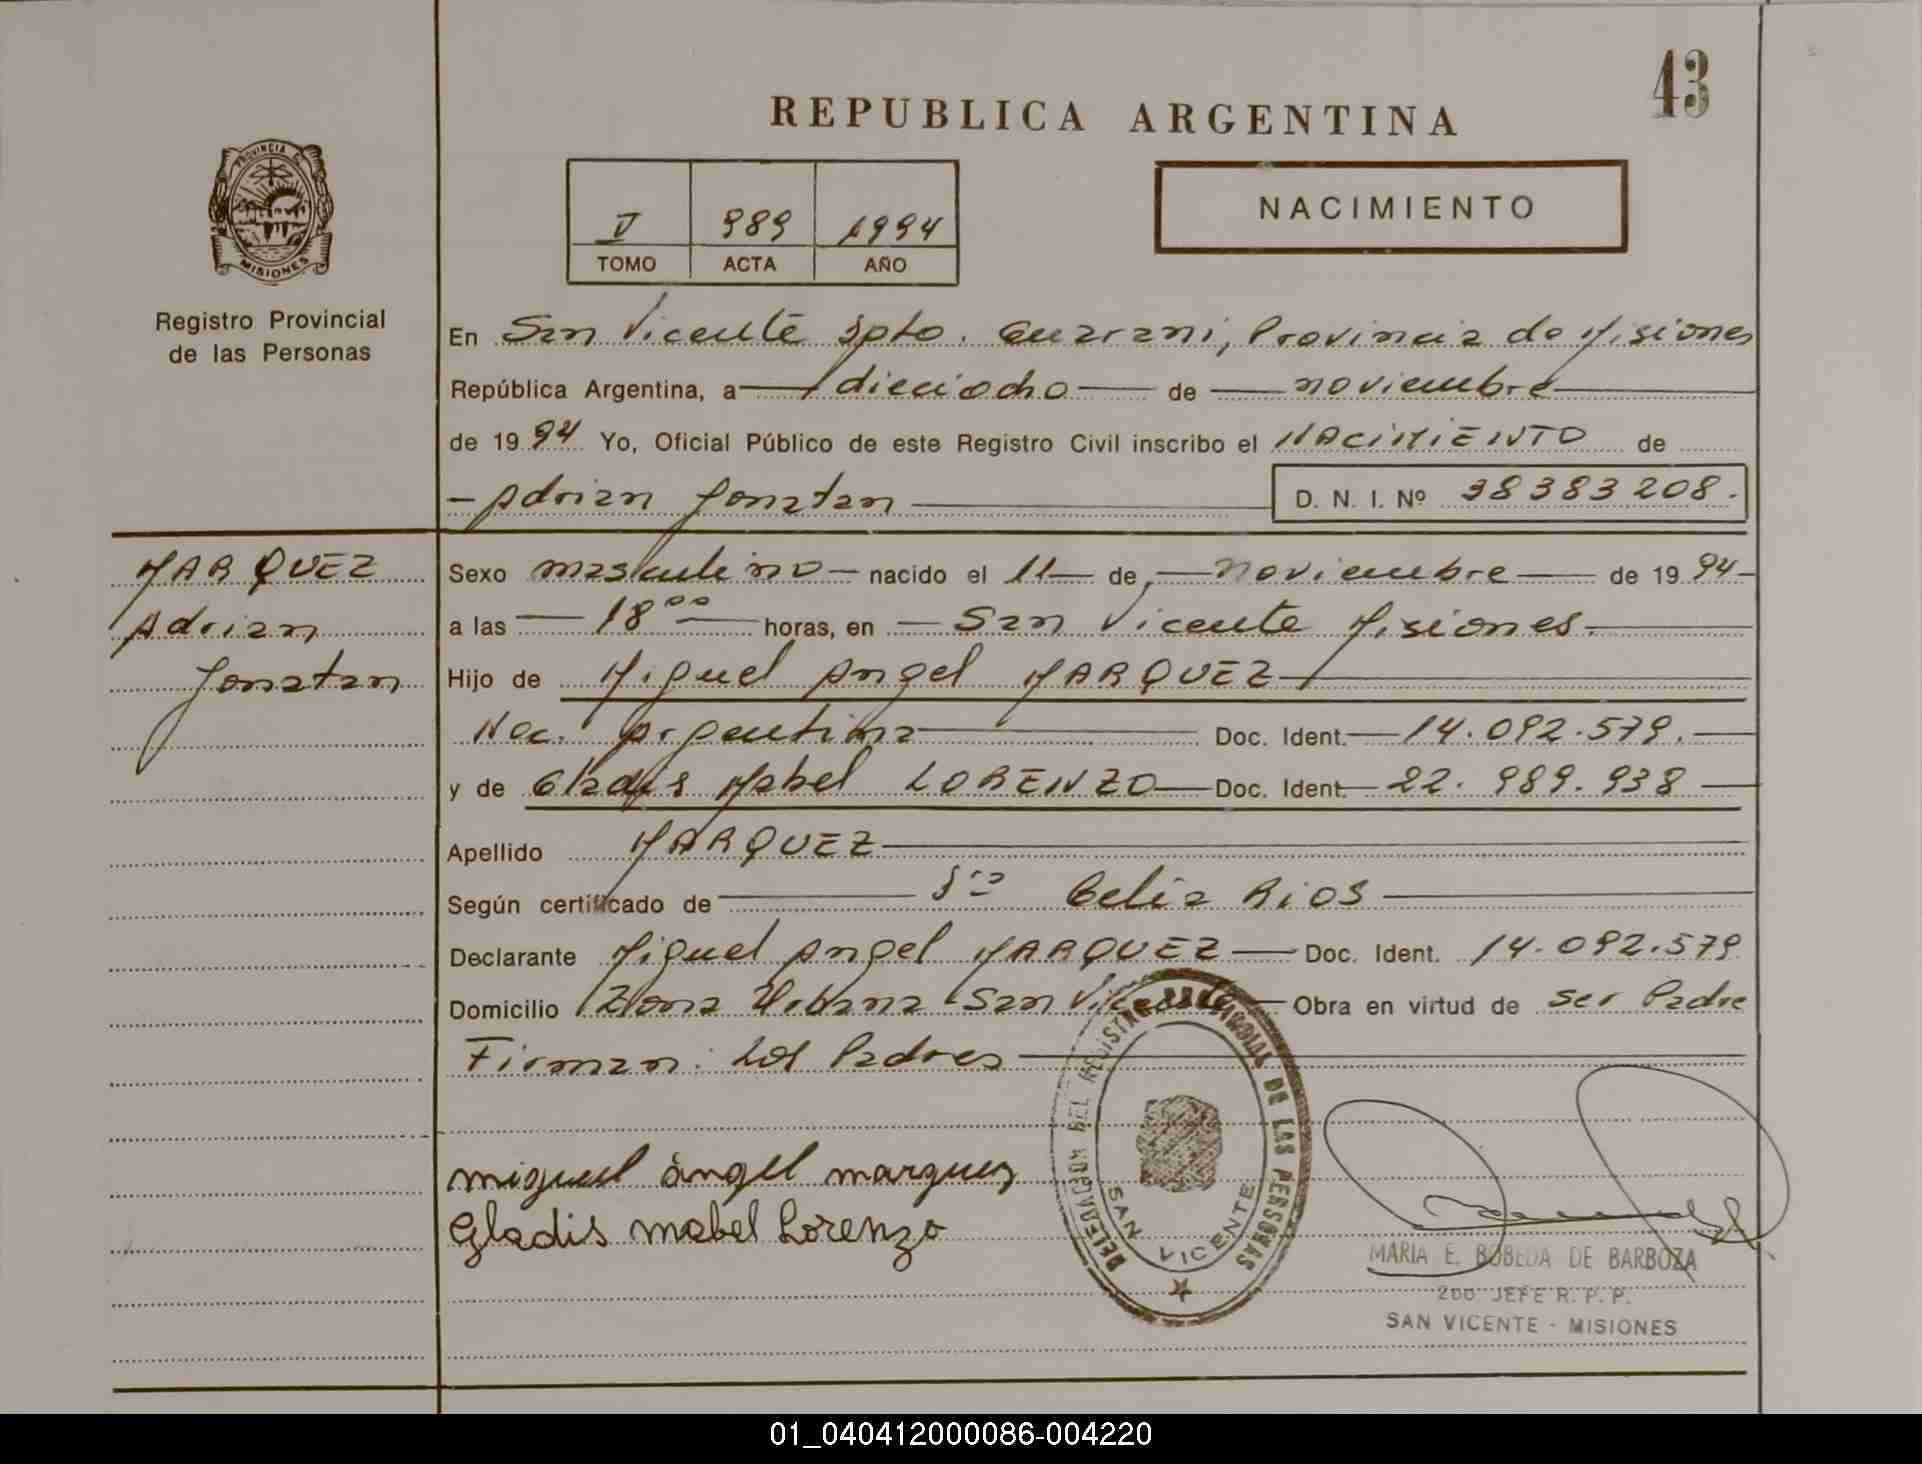 43
REPUBLICA ARGENTINA
PROVINCIA DE
MISIONES
Registro Provincial
de las Personas
V 989 1994
TOMO ACTA AÑO
NACIMIENTO
En San Vicente Dpto. Guarani, Provincia de Misiones
República Argentina, a dieciocho de noviembre
de 1994 Yo, Oficial Público de este Registro Civil inscribo el NACIMIENTO de
- Adrian Jonatan D. N. I. Nº 38383208.
MARQUEZ
Adrian
Jonatan
Sexo masculino nacido el 11 de noviembre de 1994
a las 18⁰⁰ horas, en San Vicente Misiones.
Hijo de Miguel Angel MARQUEZ
Nac. Argentina Doc. Ident. 14.092.579.
y de Gladys Mabel LORENZO Doc. Ident. 22.989.938
Apellido MARQUEZ
Según certificado de Celia RIOS
Declarante Miguel Angel MARQUEZ Doc. Ident. 14.092.579
Domicilio Zona Urbana San Vicente Obra en virtud de ser Padre
Firman: Los Padres
miguel ángel marquez
Gladis mabel Lorenzo
DELEGACION DEL REGISTRO PROVINCIAL DE LAS PERSONAS
SAN VICENTE
MARIA E. BOBEDA DE BARBOZA
2DO JEFE R. P. P.
SAN VICENTE - MISIONES
01_040412000086-004220